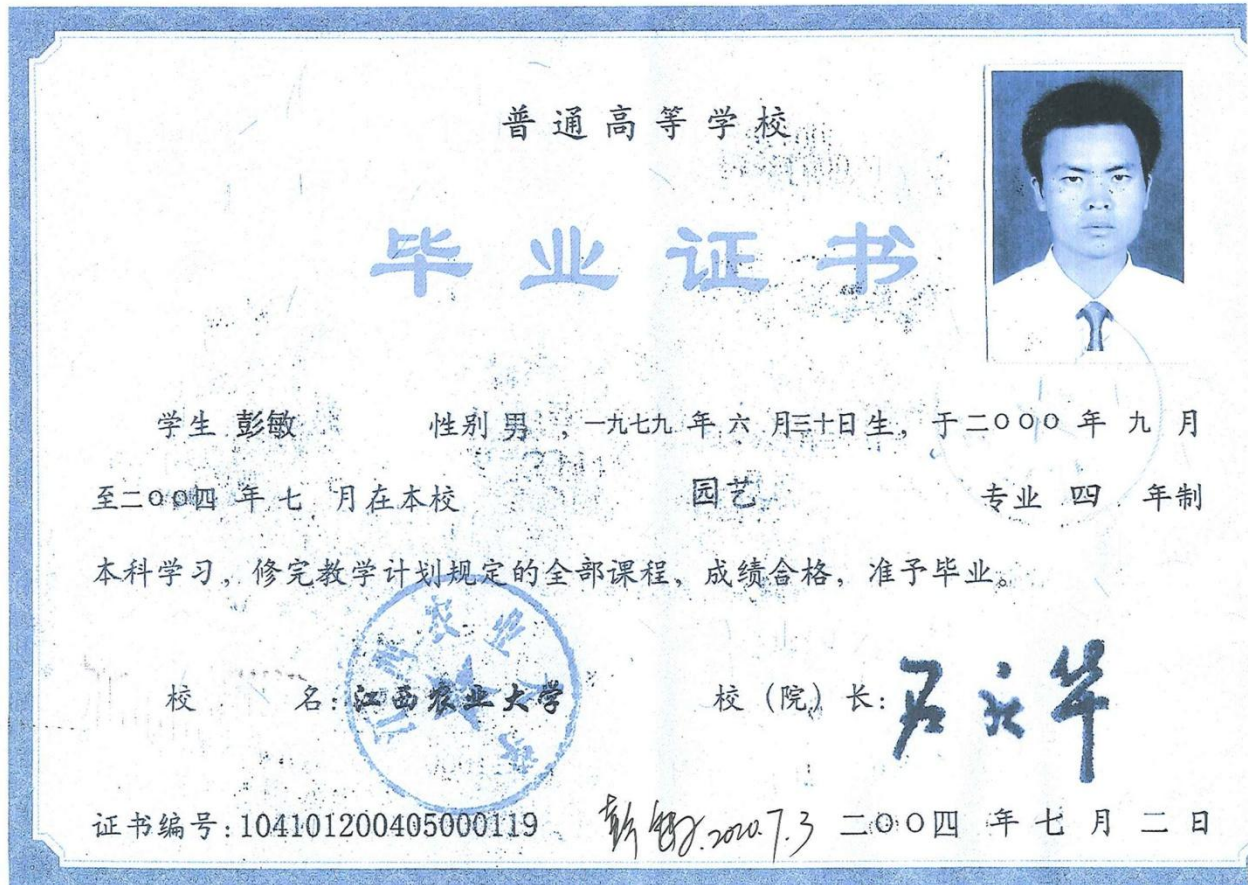 普通高等学校
毕业证书
学生 彭敏 性别 男 ，一九七九 年 六 月三十日生，于二〇〇〇 年 九 月
至二〇〇四 年 七 月在本校 园艺 专业 四 年制
本科学习，修完教学计划规定的全部课程，成绩合格，准予毕业。
校 名：江西农业大学 校（院）长：
证书编号：104101200405000119 彭敏.2020.7.3 二〇〇四 年 七 月 二 日